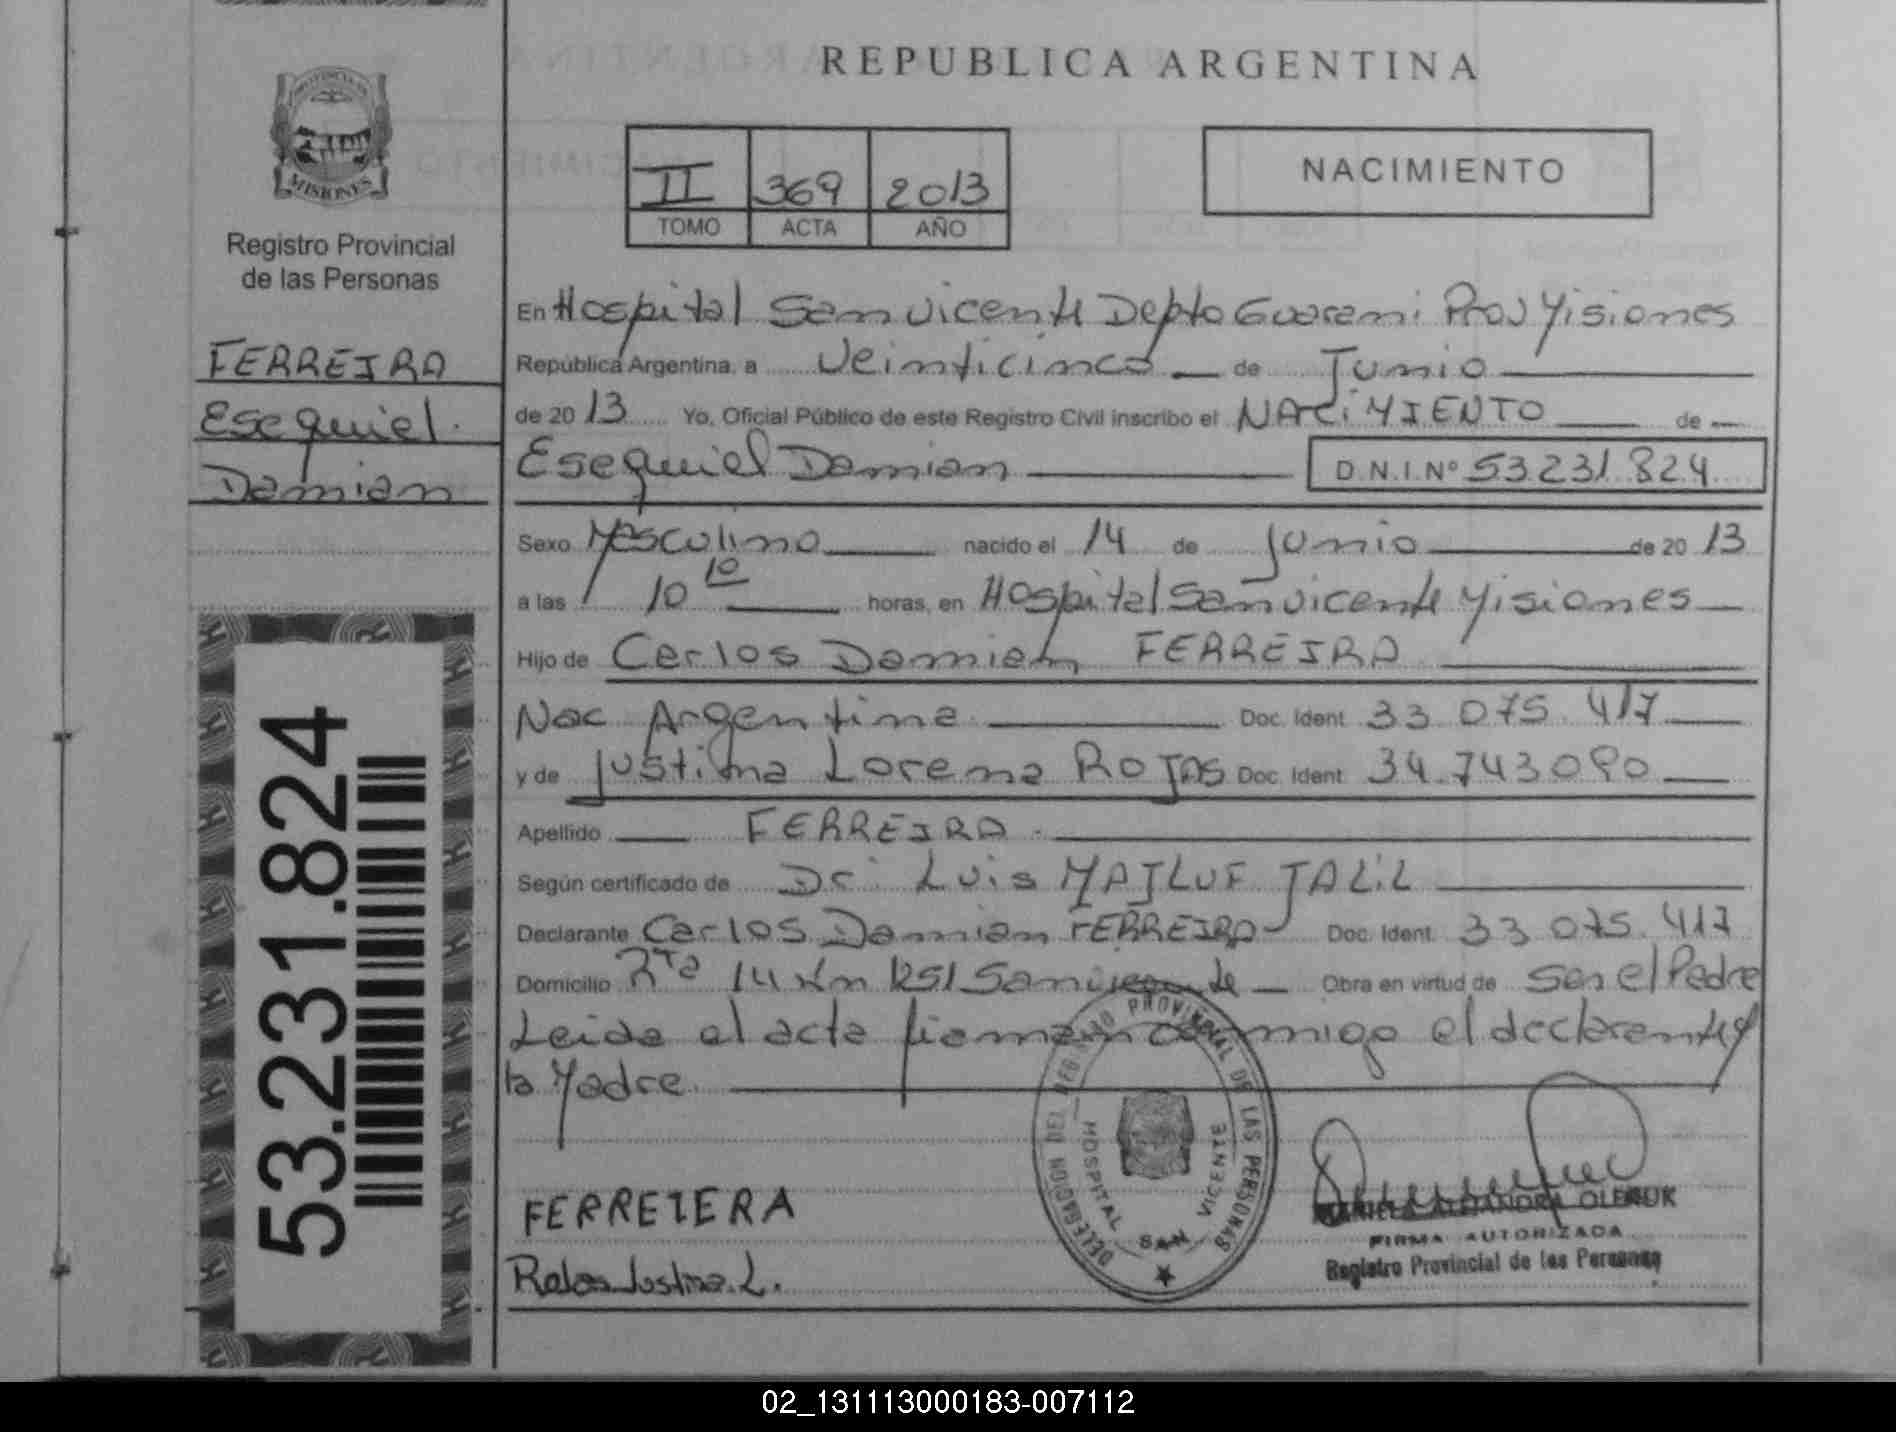 REPUBLICA ARGENTINA
PROVINCIA DE
MISIONES
Registro Provincial
de las Personas
FERREIRA
Esequiel
Damian
53.231.824
II 369 2013
TOMO ACTA AÑO
NACIMIENTO
En Hospital San vicente Depto Guarani Prov Misiones
República Argentina, a Veinticinco de Junio
de 20 13 Yo, Oficial Público de este Registro Civil inscribo el NACIMIENTO de
Esequiel Damian D.N.I. Nº 53.231.824
Sexo Masculino nacido el 14 de Junio de 20 13
a las 10 10 horas, en Hospital San vicente Misiones
Hijo de Carlos Damian FERREIRA
Nac Argentina Doc. Ident. 33 075. 417
y de Justina Lorena ROJAS Doc. Ident. 34.743.090
Apellido FERREIRA
Según certificado de Dr. Luis MAJLUF JALIL
Declarante Carlos Damian FERREIRA Doc. Ident. 33 075. 417
Domicilio Rta 14 Km 1251 San vicente Obra en virtud de Ser el Padre
Leida el acta firman conmigo el declarante y
la Madre
DELEGACION DEL REGISTRO PROVINCIAL DE LAS PERSONAS
HOSPITAL SAN VICENTE
FERREIERA
Justina. L.
ALEJANDRA OLEÑUK
FIRMA AUTORIZADA
Registro Provincial de las Personas
02_131113000183-007112